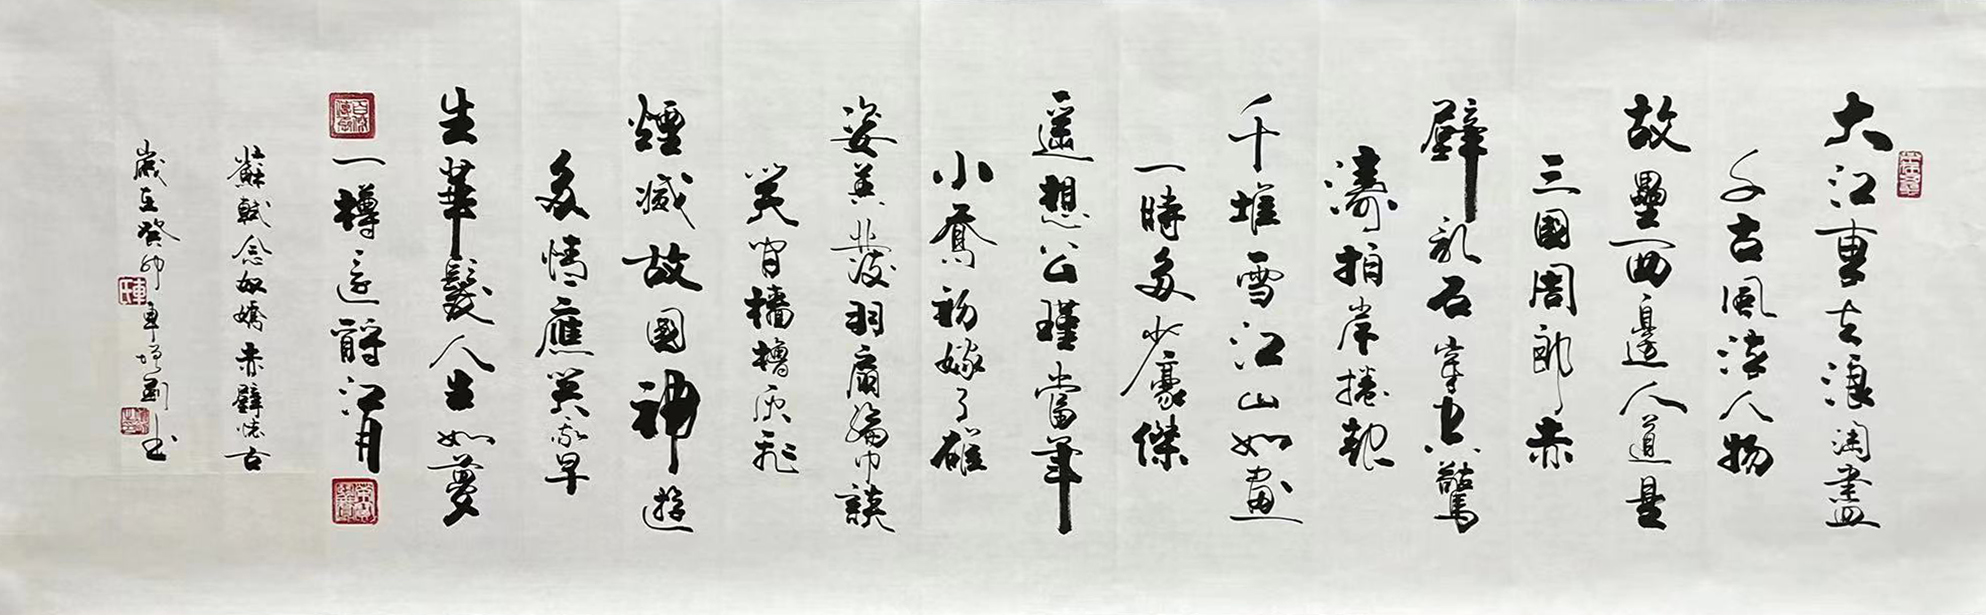 大江東去浪淘盡
千古風流人物
故壘西邊人道是
三國周郎赤
壁亂石穿空驚
濤拍岸捲起
千堆雪江山如畫
一時多少豪傑
遥想公瑾當年
小喬初嫁了雄
姿英發羽扇綸巾談
笑間檣櫓灰飛
煙滅故國神遊
多情應笑我早
生華髮人生如夢
一樽還酹江月
蘇軾念奴嬌赤壁懷古
歲在癸卯車增書
車氏